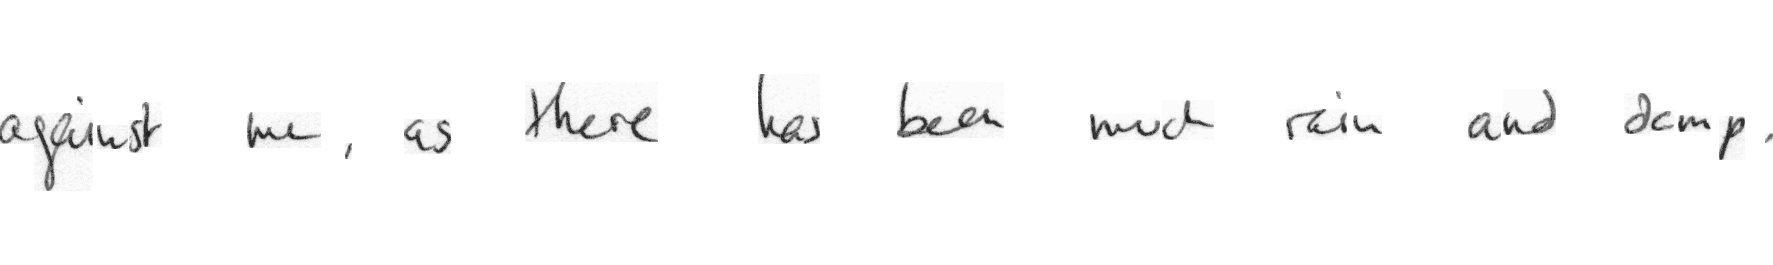 against me, as there has been much rain and damp.